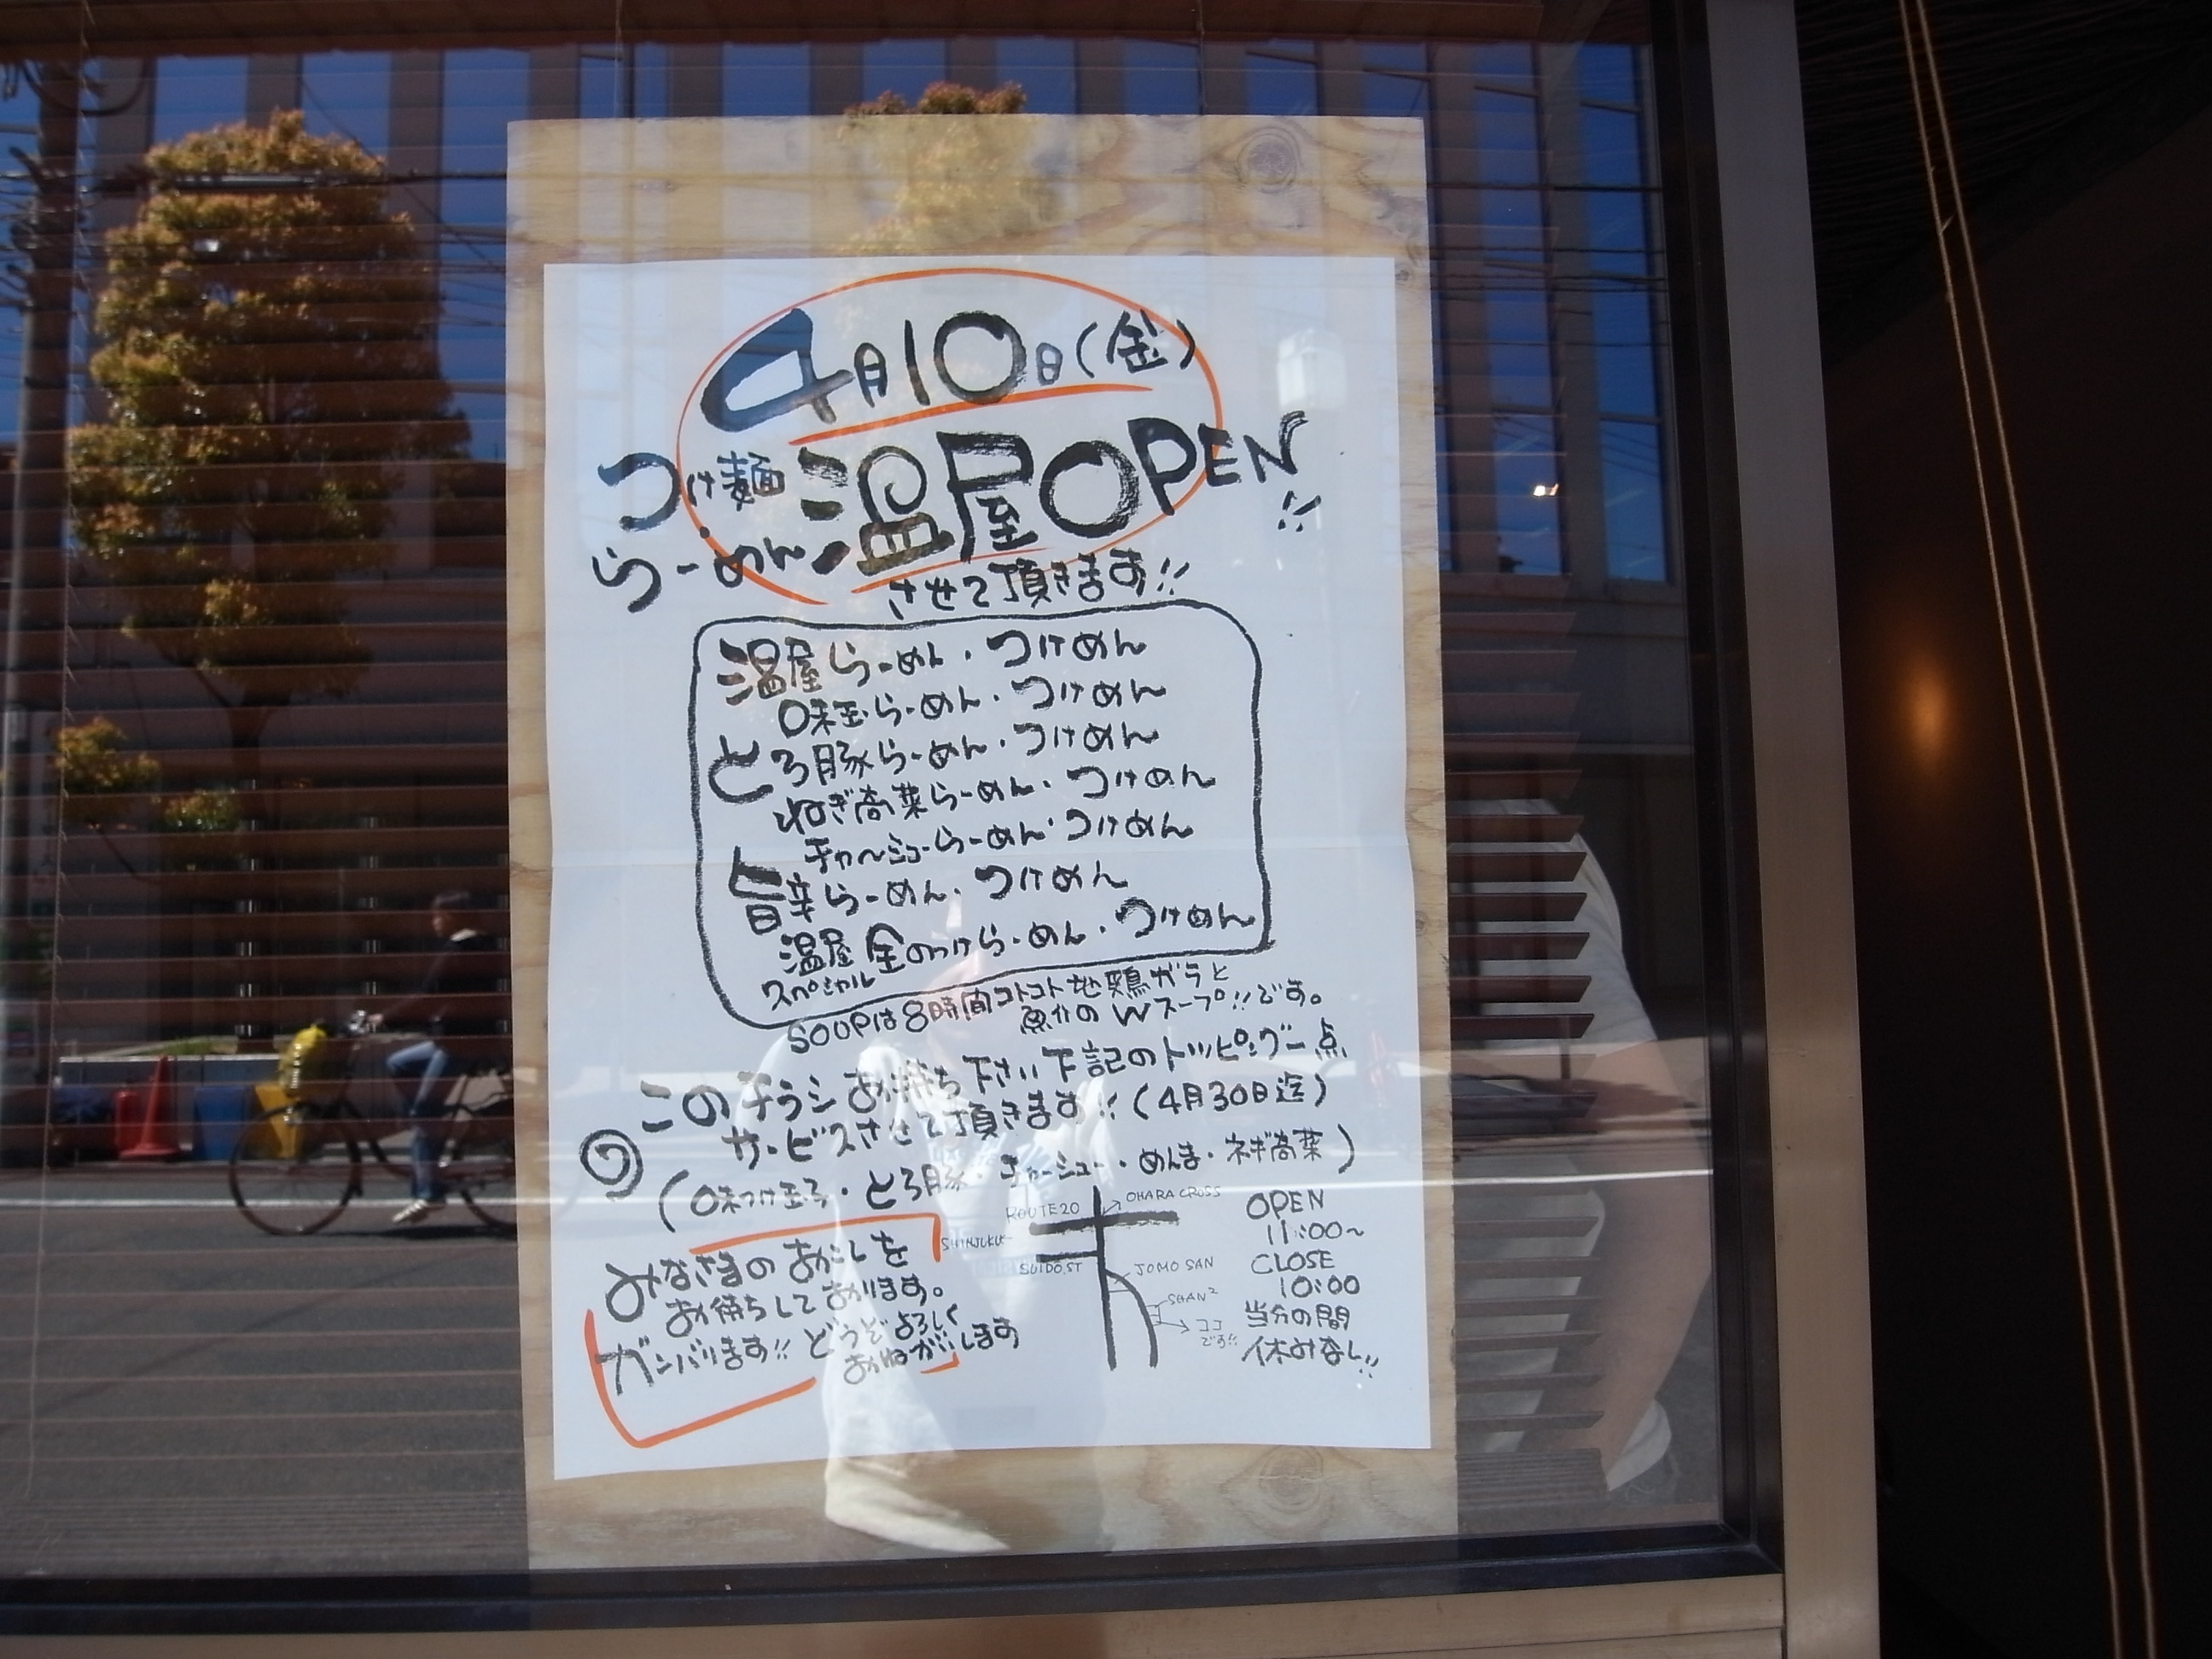 4月10日(金)
つけ麺
らーめん
温屋OPEN!!
させて頂きます!!
温屋らーめん・つけめん
味玉らーめん・つけめん
とろ豚らーめん・つけめん
ねぎ高菜らーめん・つけめん
チャーシューらーめん・つけめん
旨辛らーめん・つけめん
温屋スペシャル 全のっけらーめん・つけめん
SOUPは8時間コトコト地鶏ガラと
魚介のWスープ!!です。
このチラシお持ち下さい下記のトッピング一点
サービスさせて頂きます!!(4月30日迄)
(味つけ玉子・とろ豚・チャーシュー・めんま・ネギ高菜)
みなさまのおこしを
お待ちしております。
ガンバります!!どうぞよろしく
おねがいします
ROUTE20
OHARA CROSS
SHINJUKU
SUIDO.ST
JOMO SAN
SHAN²
ココ
です!!
OPEN
11:00~
CLOSE
10:00
当分の間
休みなし!!